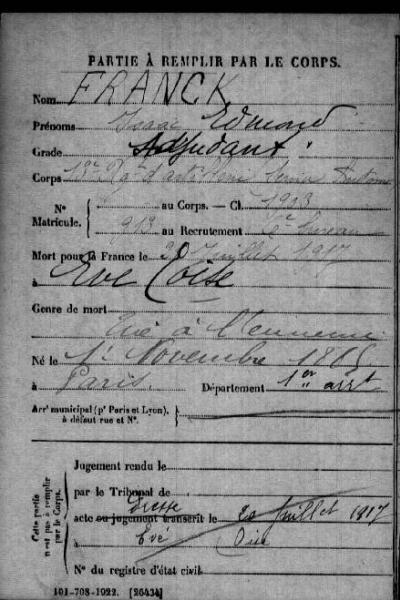 PARTIE À REMPLIR PAR LE CORPS.
Nom FRANCK
Prénoms Isaac Edmond
Grade Adjudant
Corps 13e d'artillerie Service
N° au Corps. — Cl. 1913
Matricule. 913 au Recrutement bureau
Mort pour la France le Juillet 1917
à Eve Oise
Genre de mort
Tué à l'ennemi
Né le 1er Novembre
à Paris. Département 1er arrt
Arrt municipal (pr Paris et Lyon),
à défaut rue et N°.
Cette partie
n'est pas à remplir
par le Corps.
Jugement rendu le
par le Tribunal de
acte ou jugement transcrit le 20 Juillet 1917
à Eve Oise
N° du registre d'état civil
101-708-1922. [26434]